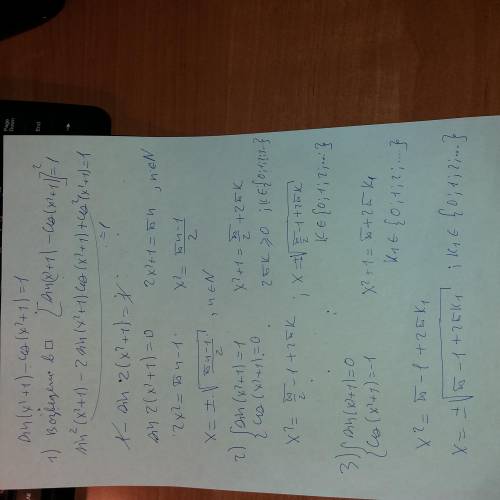 sin(x²+1) - cos(x²+1) = 1
1) Возведем в □ [sin(x²+1) - cos(x²+1)]² = 1
sin²(x²+1) - 2 sin(x²+1) cos(x²+1) + cos²(x²+1) = 1
=1
1 - sin 2(x²+1) = 1
sin 2(x²+1) = 0 2x²+1 = πn , n∈N
2x² = πn - 1 x² = (πn-1)/2
x = ±√((πn-1)/2) , n∈N
2) { sin(x²+1) = 1 x²+1 = π/2 + 2πk
{ cos(x²+1) = 0 2πk ≥ 0 ; k∈{0; 1; 2;...}
x² = π/2 - 1 + 2πk ; x = ±√(π/2 - 1 + 2πk)
k∈{0; 1; 2;...}
3) { sin(x²+1) = 0 x²+1 = π + 2πk₁
{ cos(x²+1) = -1 k₁∈{0; 1; 2;...}
x² = π - 1 + 2πk₁
x = ±√(π - 1 + 2πk₁) ; k₁∈{0; 1; 2;...}
Page Down
End